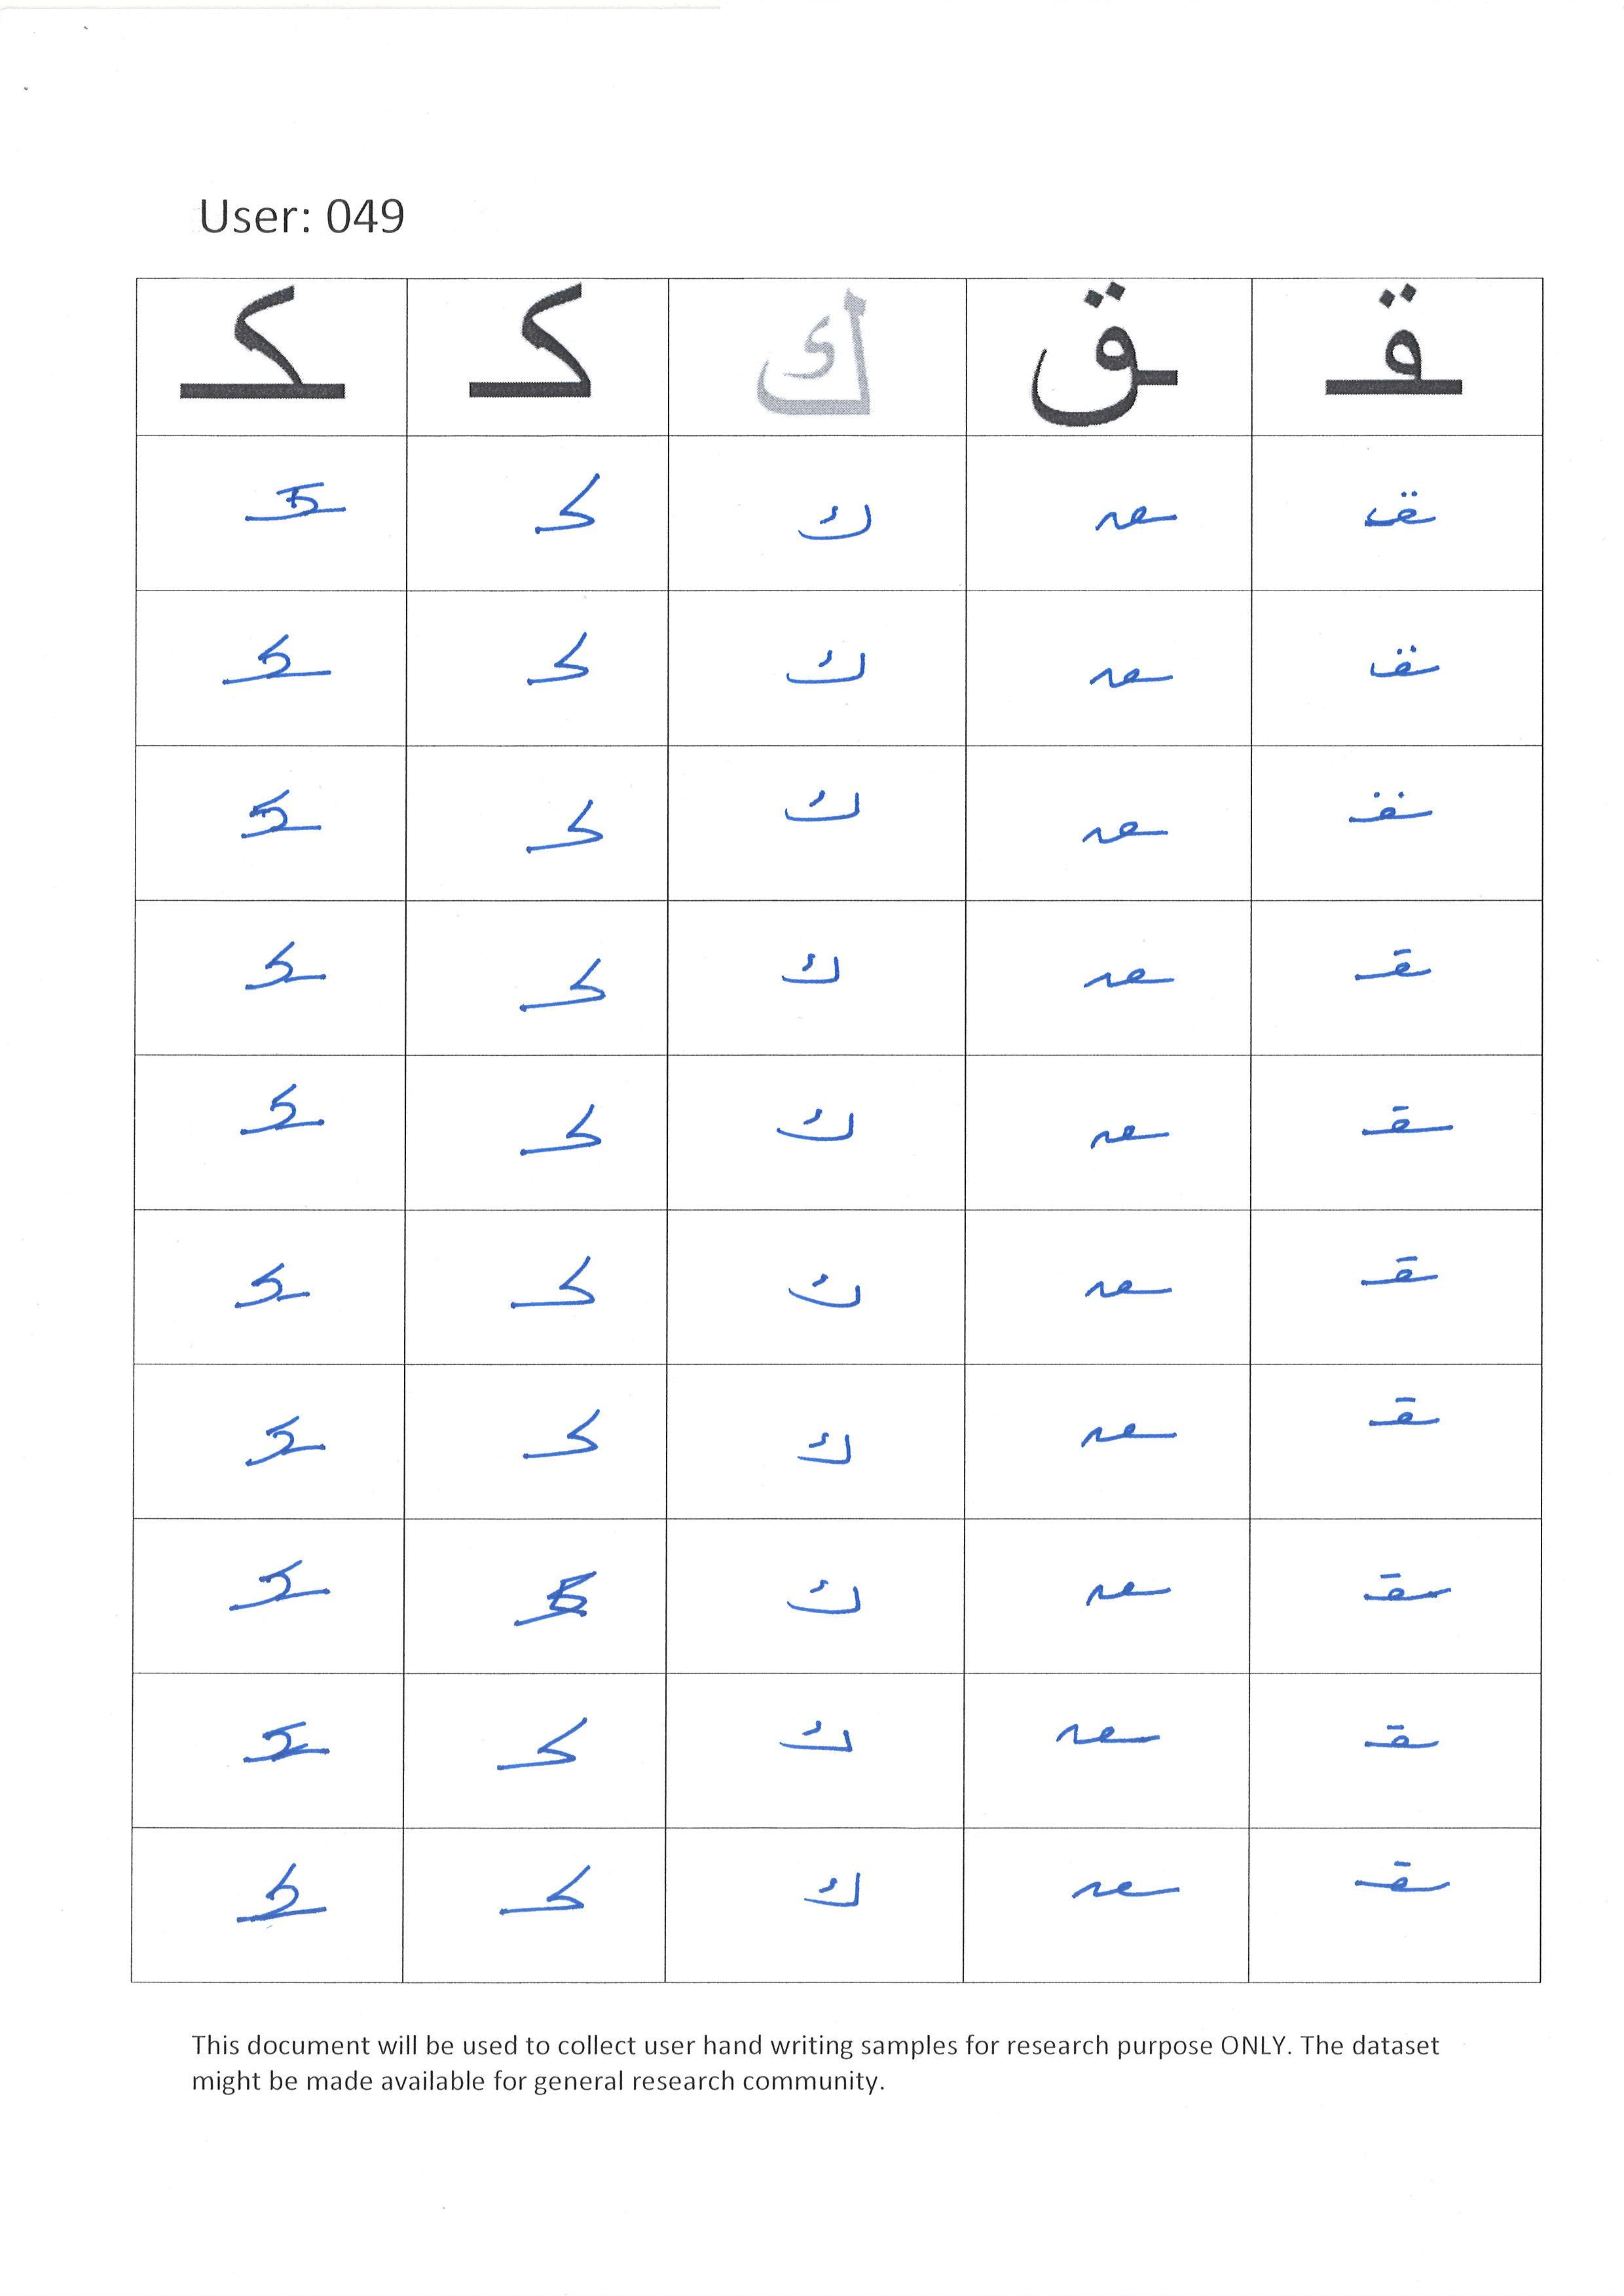 User: 049
ـقـ ـق ك كـ ـكـ
ـقـ ـق ك كـ ـكـ
ـقـ ـق ك كـ ـكـ
ـقـ ـق ك كـ ـكـ
ـقـ ـق ك كـ ـكـ
ـقـ ـق ك كـ ـكـ
ـقـ ـق ك كـ ـكـ
ـقـ ـق ك كـ ـكـ
ـقـ ـق ك كـ ـكـ
ـقـ ـق ك كـ ـكـ
ـقـ ـق ك كـ ـكـ
This document will be used to collect user hand writing samples for research purpose ONLY. The dataset
might be made available for general research community.